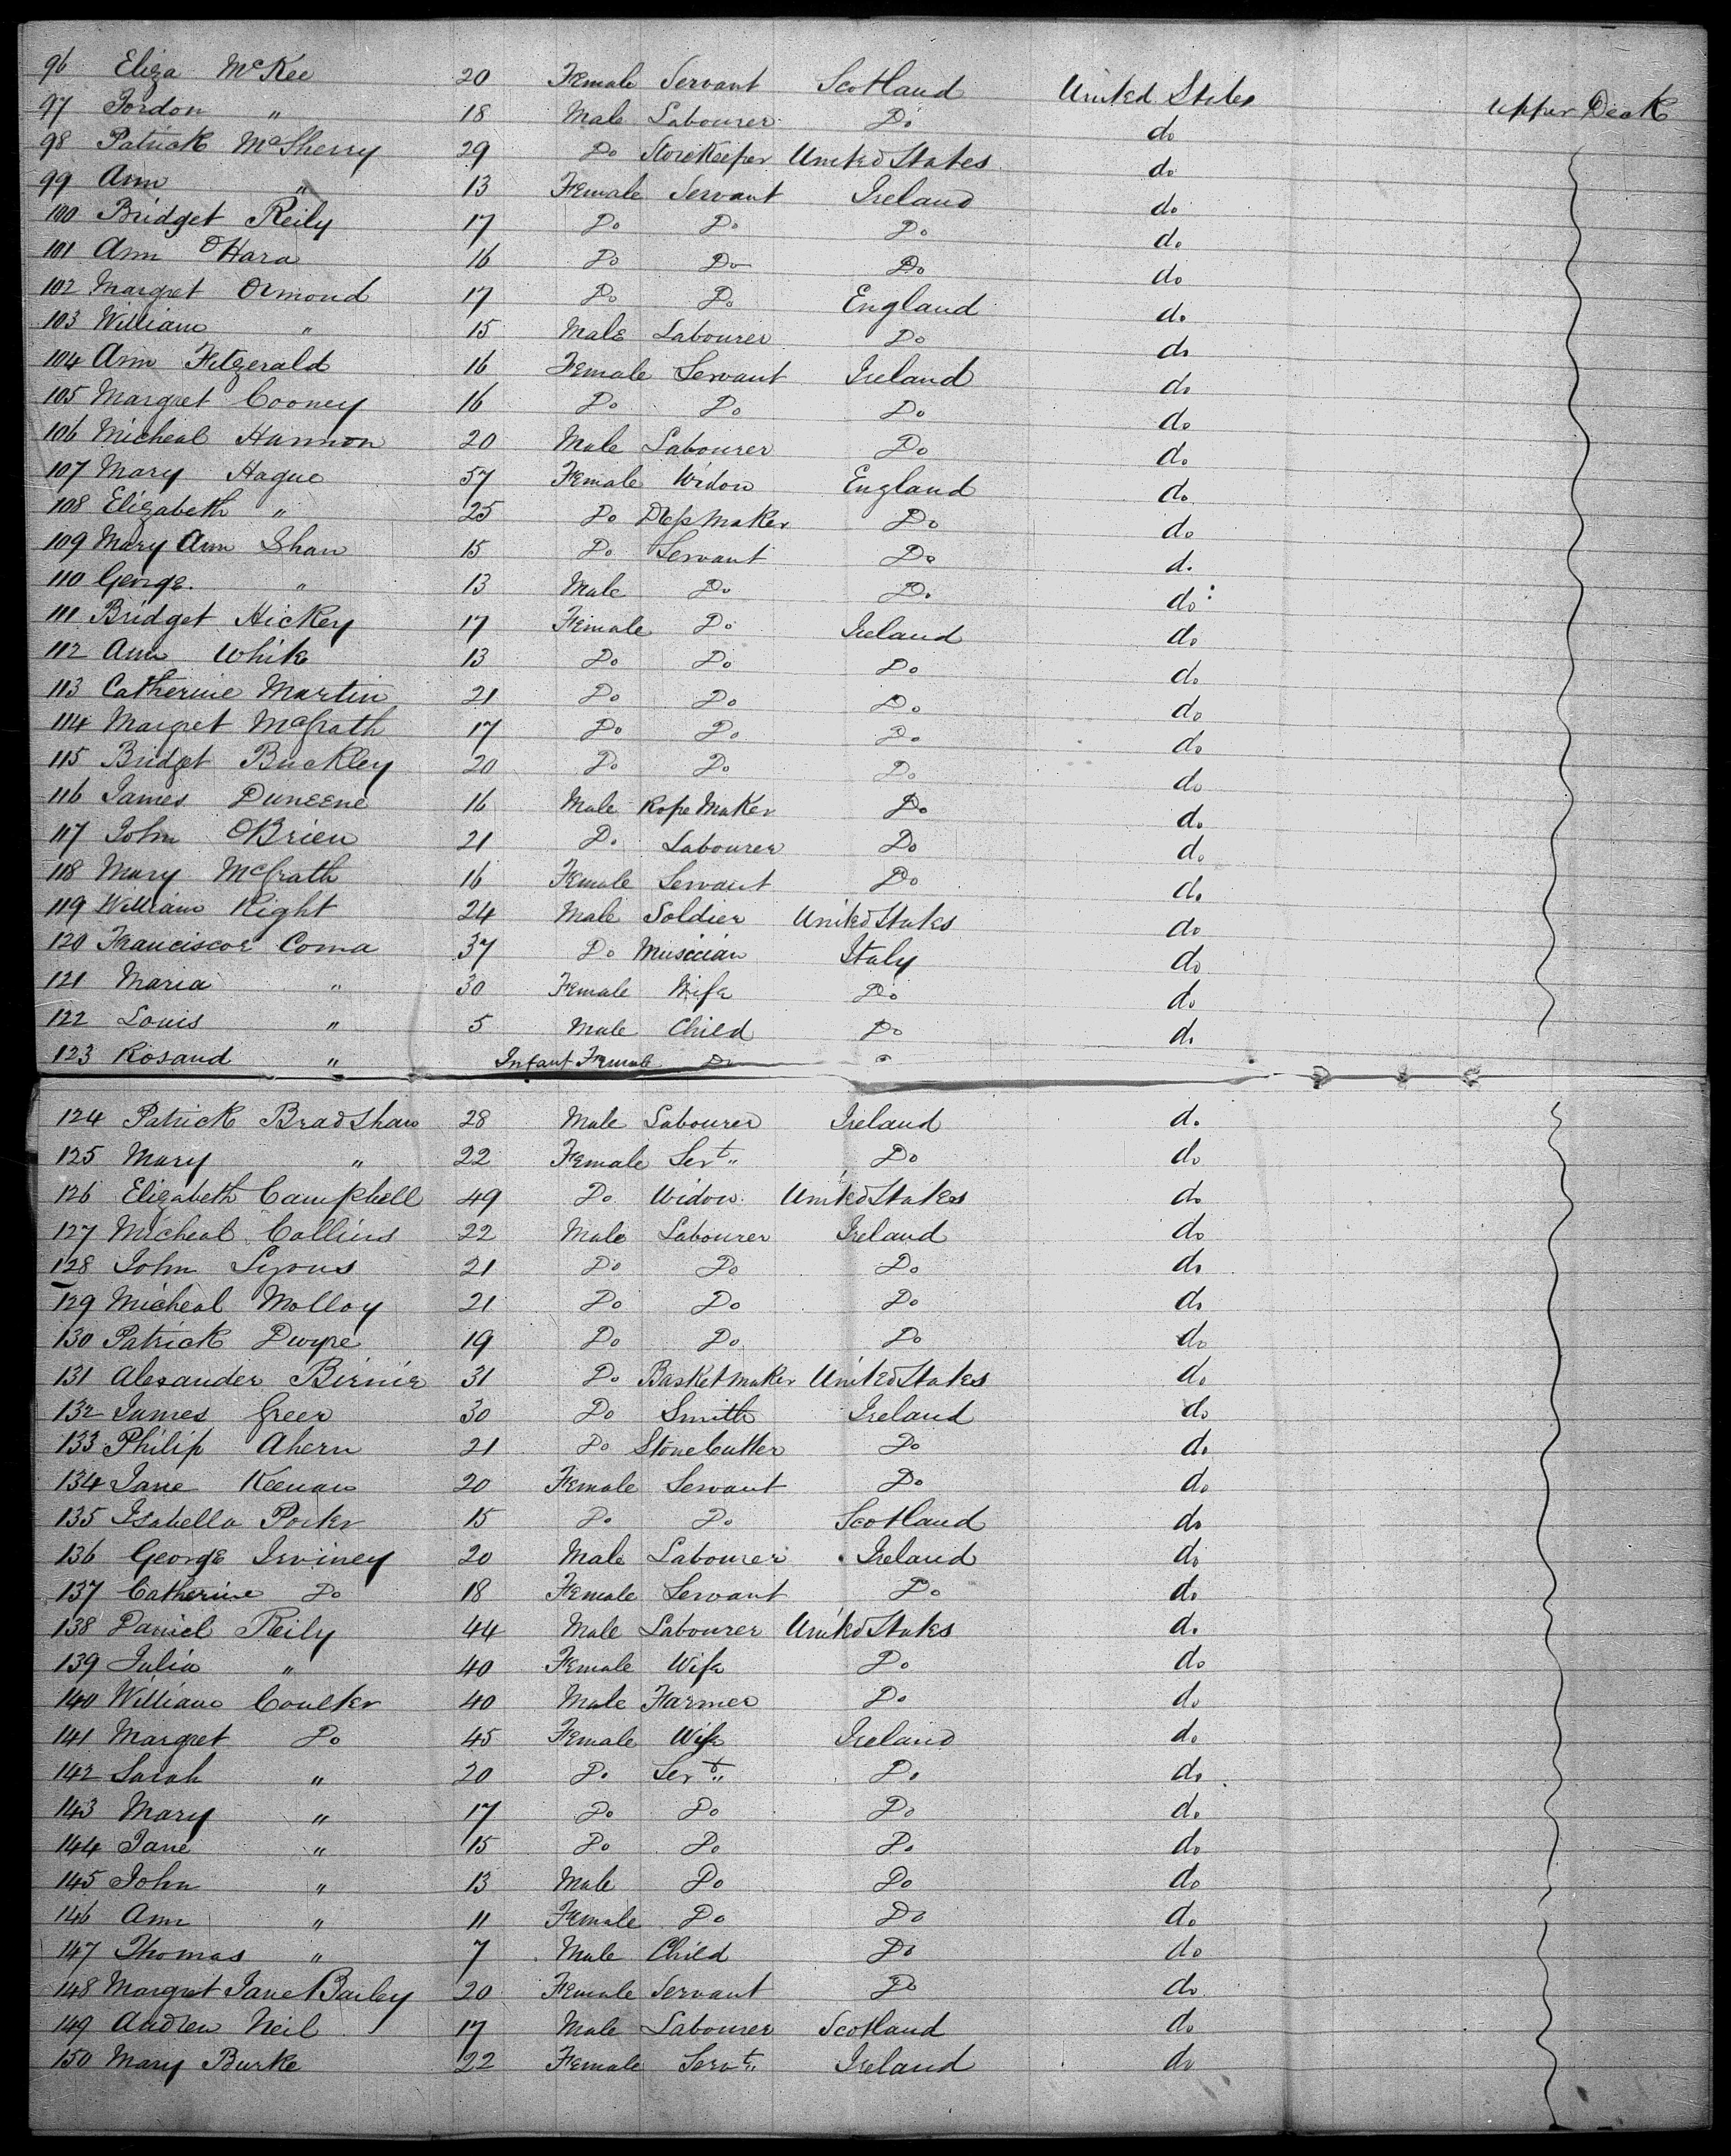 96 Eliza McKee 20 Female Servant Scotland United States Upper Deck
97 Jordon " 18 Male Labourer Do do
98 Patrick McSherry 29 Do Storekeeper United States do
99 Ann " 13 Female Servant Ireland do
100 Bridget Reily 17 Do Do Do do
101 Ann OHara 16 Do Do Do do
102 Margret Ormond 17 Do Do England do
103 William " 15 Male Labourer Do do
104 Ann Fitzerald 16 Female Servant Ireland do
105 Margret Cooney 16 Do Do Do do
106 Micheal Hannon 20 Male Labourer Do do
107 Mary Hague 57 Female Widow England do
108 Elizabeth " 25 Do Dressmaker Do do
109 Mary Ann Shaw 15 Do Servant Do do
110 George " 13 Male Do Do do
111 Bridget Hickey 17 Female Do Ireland do
112 Ann White 13 Do Do Do do
113 Catherine Martin 21 Do Do Do do
114 Margret McGrath 17 Do Do Do do
115 Bridget Buckley 20 Do Do Do do
116 James Duneene 16 Male Rope Maker Do do
117 John OBrien 21 Do Labourer Do do
118 Mary McGrath 16 Female Servant Do do
119 William Right 24 Male Soldier United States do
120 Franciscoe Coma 37 Do Musician Italy do
121 Maria " 30 Female Wife Do do
122 Louis " 5 Male Child Do do
123 Rosand " Infant Female Do
124 Patrick Bradshaw 28 Male Labourer Ireland do
125 Mary " 22 Female Sert Do do
126 Elizabeth Campbell 49 Do Widow United States do
127 Micheal Collins 22 Male Labourer Ireland do
128 John Lyons 21 Do Do Do do
129 Micheal Molloy 21 Do Do Do do
130 Patrick Dwyre 19 Do Do Do do
131 Alexander Birnie 31 Do Basketmaker United States do
132 James Greer 30 Do Smith Ireland do
133 Philip Ahern 21 Do Stone Cutter Do do
134 Jane Keenan 20 Female Servant Do do
135 Isabella 15 Do Do Scotland do
136 George Irviney 20 Male Labourer Ireland do
137 Catherine Do 18 Female Servant Do do
138 Daniel Reily 44 Male Labourer United States do
139 Julia " 40 Female Wife Do do
140 William Coulter 40 Male Farmer Do do
141 Margret Do 45 Female Wife Ireland do
142 Sarah " 20 Do Sert Do do
143 Mary " 17 Do Do Do do
144 Jane " 15 Do Do Do do
145 John " 13 Male Do Do do
146 Ann " 11 Female Do Do do
147 Thomas " 7 Male Child Do do
148 Margret Jane Bailey 20 Female Servant Do do
149 Andrew Neil 17 Male Labourer Scotland do
150 Mary Burke 22 Female Servt Ireland do